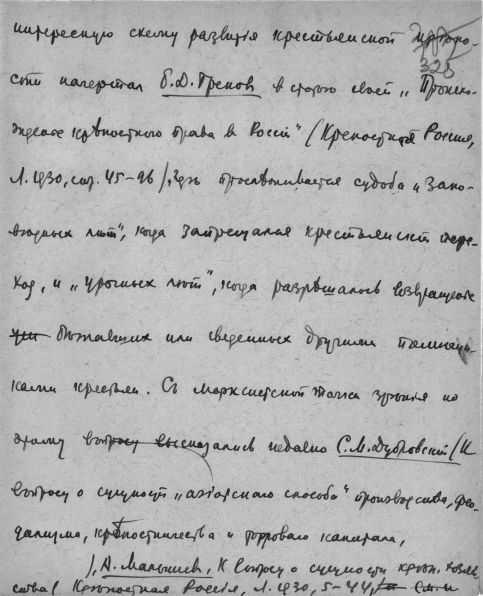 интересную схему развитія крестьянской
328
сти начертал Б.Д.Греков в статье своей „Проис-
хожденіе крѣпостного права в Россіи" (Крепостная Россия,
Л. 1930, стр. 45-96), гдѣ прослѣживается судьба „запо-
вѣдных лѣт", когда запрещался крестьянскій пере-
ход, и „урочных лѣт", когда разрѣшалось возвращеніе
бѣжавших или сведенных другими помѣщи-
ками крестьян. Съ марксистской точки зрѣнія по
этому вопросу высказались недавно С.М.Дубровский (К
вопросу о сущности „азіатского способа" производства, фео-
дализма, крѣпостничества и торгового капитала,
), А. Малышев, К вопросу о сущности крѣп. хозяй-
ства (Крѣпостная Россія, Л. 1930, 5-44),